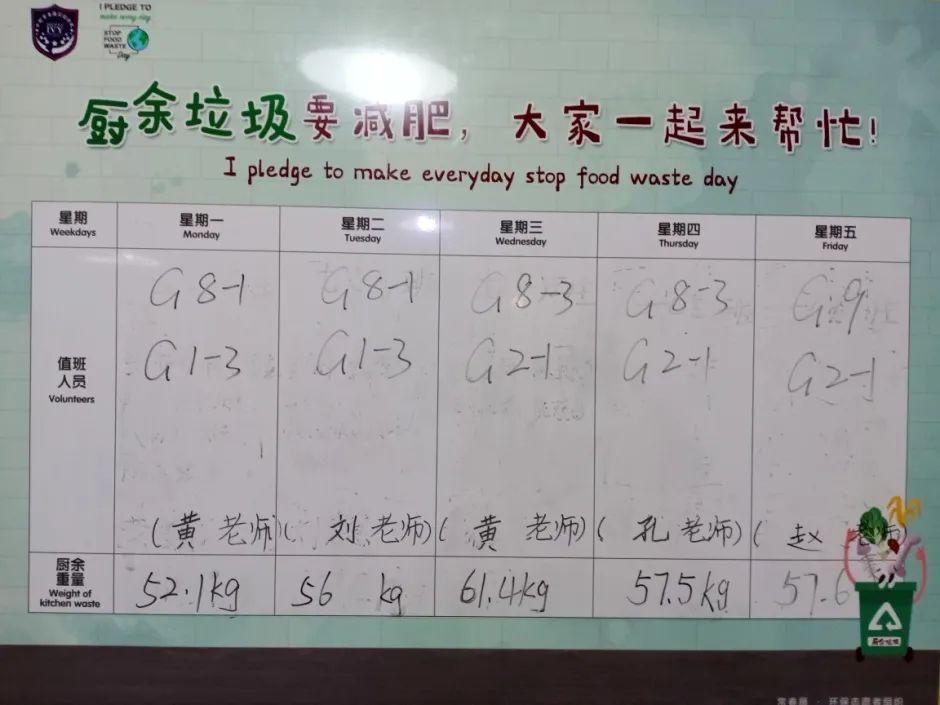 I PLEDGE TO
make every day
STOP
FOOD
WASTE
Day
厨余垃圾要减肥，大家一起来帮忙！
I pledge to make everyday stop food waste day
星期 星期一 星期二 星期三 星期四 星期五
Weekdays Monday Tuesday Wednesday Thursday Friday
G8-1 G8-1 G8-3 G8-3 G9
值班
人员
Volunteers
G1-3 G1-3 G2-1 G2-1 G2-1
(黄 老师) (刘 老师) (黄 老师) (孔 老师) (赵 老师)
厨余
重量
Weight of
kitchen waste
52.1kg 56 kg 61.4kg 57.5kg 57.6
厨余垃圾
常春藤 · 环保志愿者组织